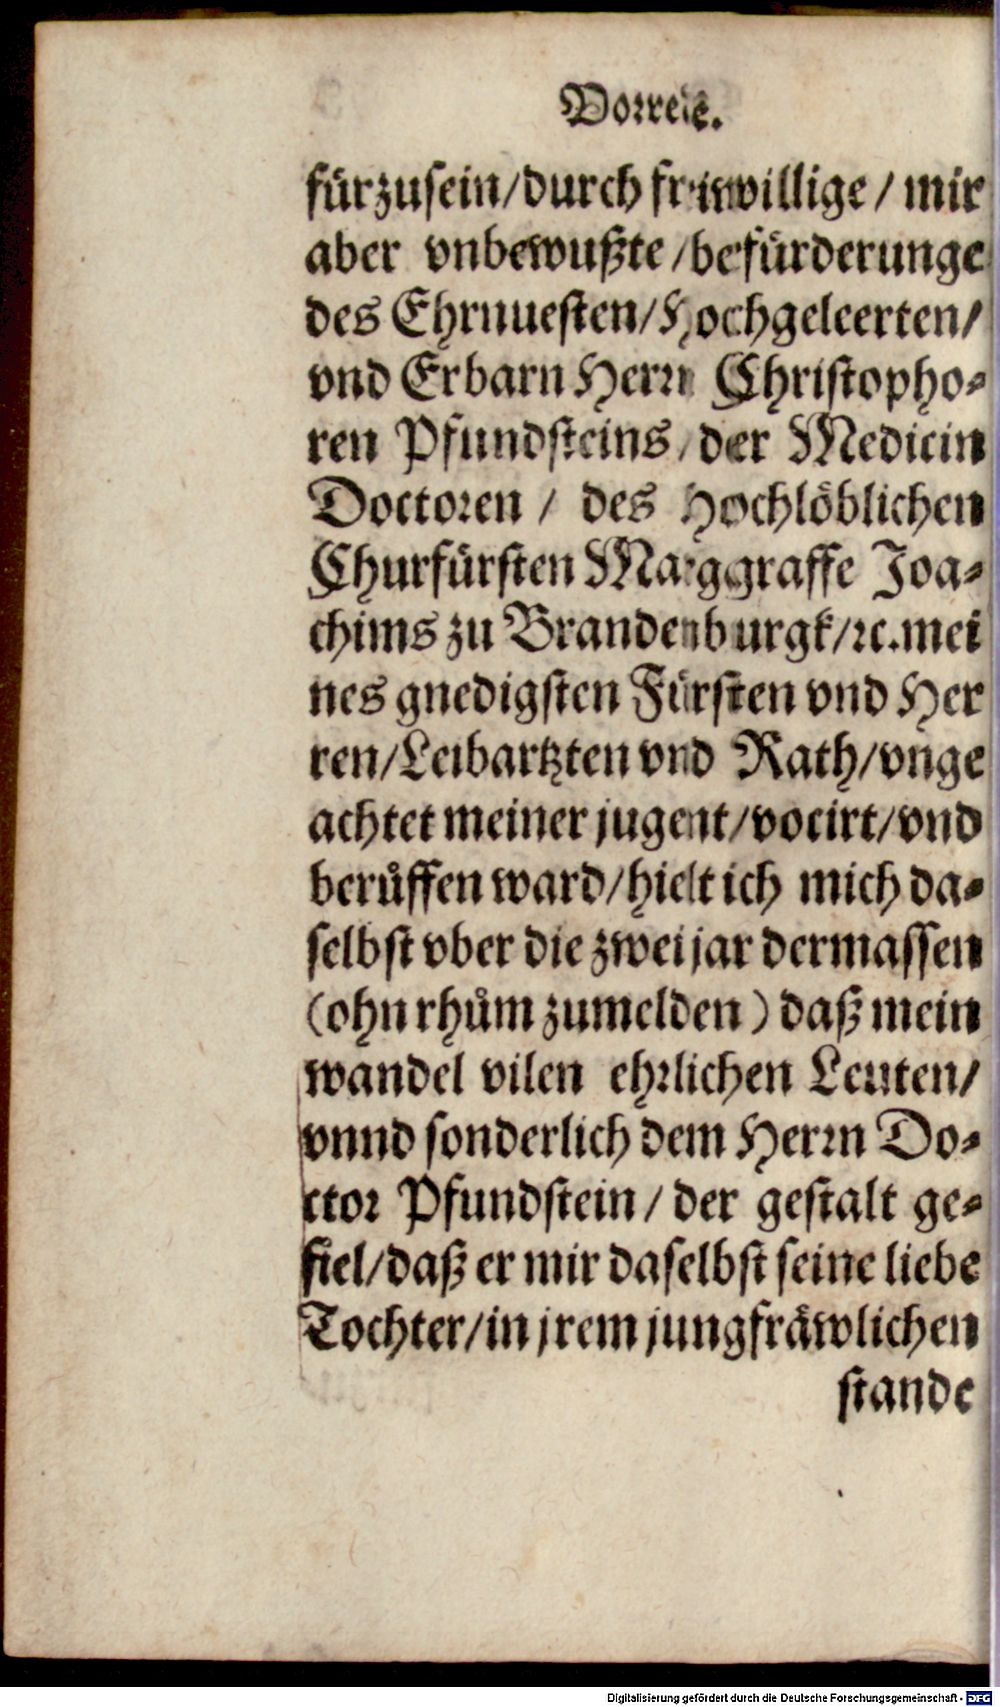 Vorrede.
fürzusein/durch freiwillige/ mir
aber vnbewußte/befürderunge
des Ehrnuesten/Hochgeleerten/
vnd Erbarn Herrn Christopho⸗
ren Pfundsteins/der Medicin
Doctoren / des Hochlöblichen
Churfürsten Marggraffe Joa⸗
chims zu Brandenburgk/ꝛc.mei
nes gnedigsten Fürsten vnd Her
ren/Leibartzten vnd Rath/vnge
achtet meiner jugent/vocirt/vnd
berůffen ward/hielt ich mich da⸗
selbst vber die zwei jar dermassen
(ohn rhům zumelden) daß mein
wandel vilen ehrlichen Leuten/
vnnd sonderlich dem Herrn Do⸗
ctor Pfundstein/ der gestalt ge⸗
fiel/daß er mir daselbst seine liebe
Tochter/in jrem jungfräwlichen
stande
Digitalisierung gefördert durch die Deutsche Forschungsgemeinschaft - DFG